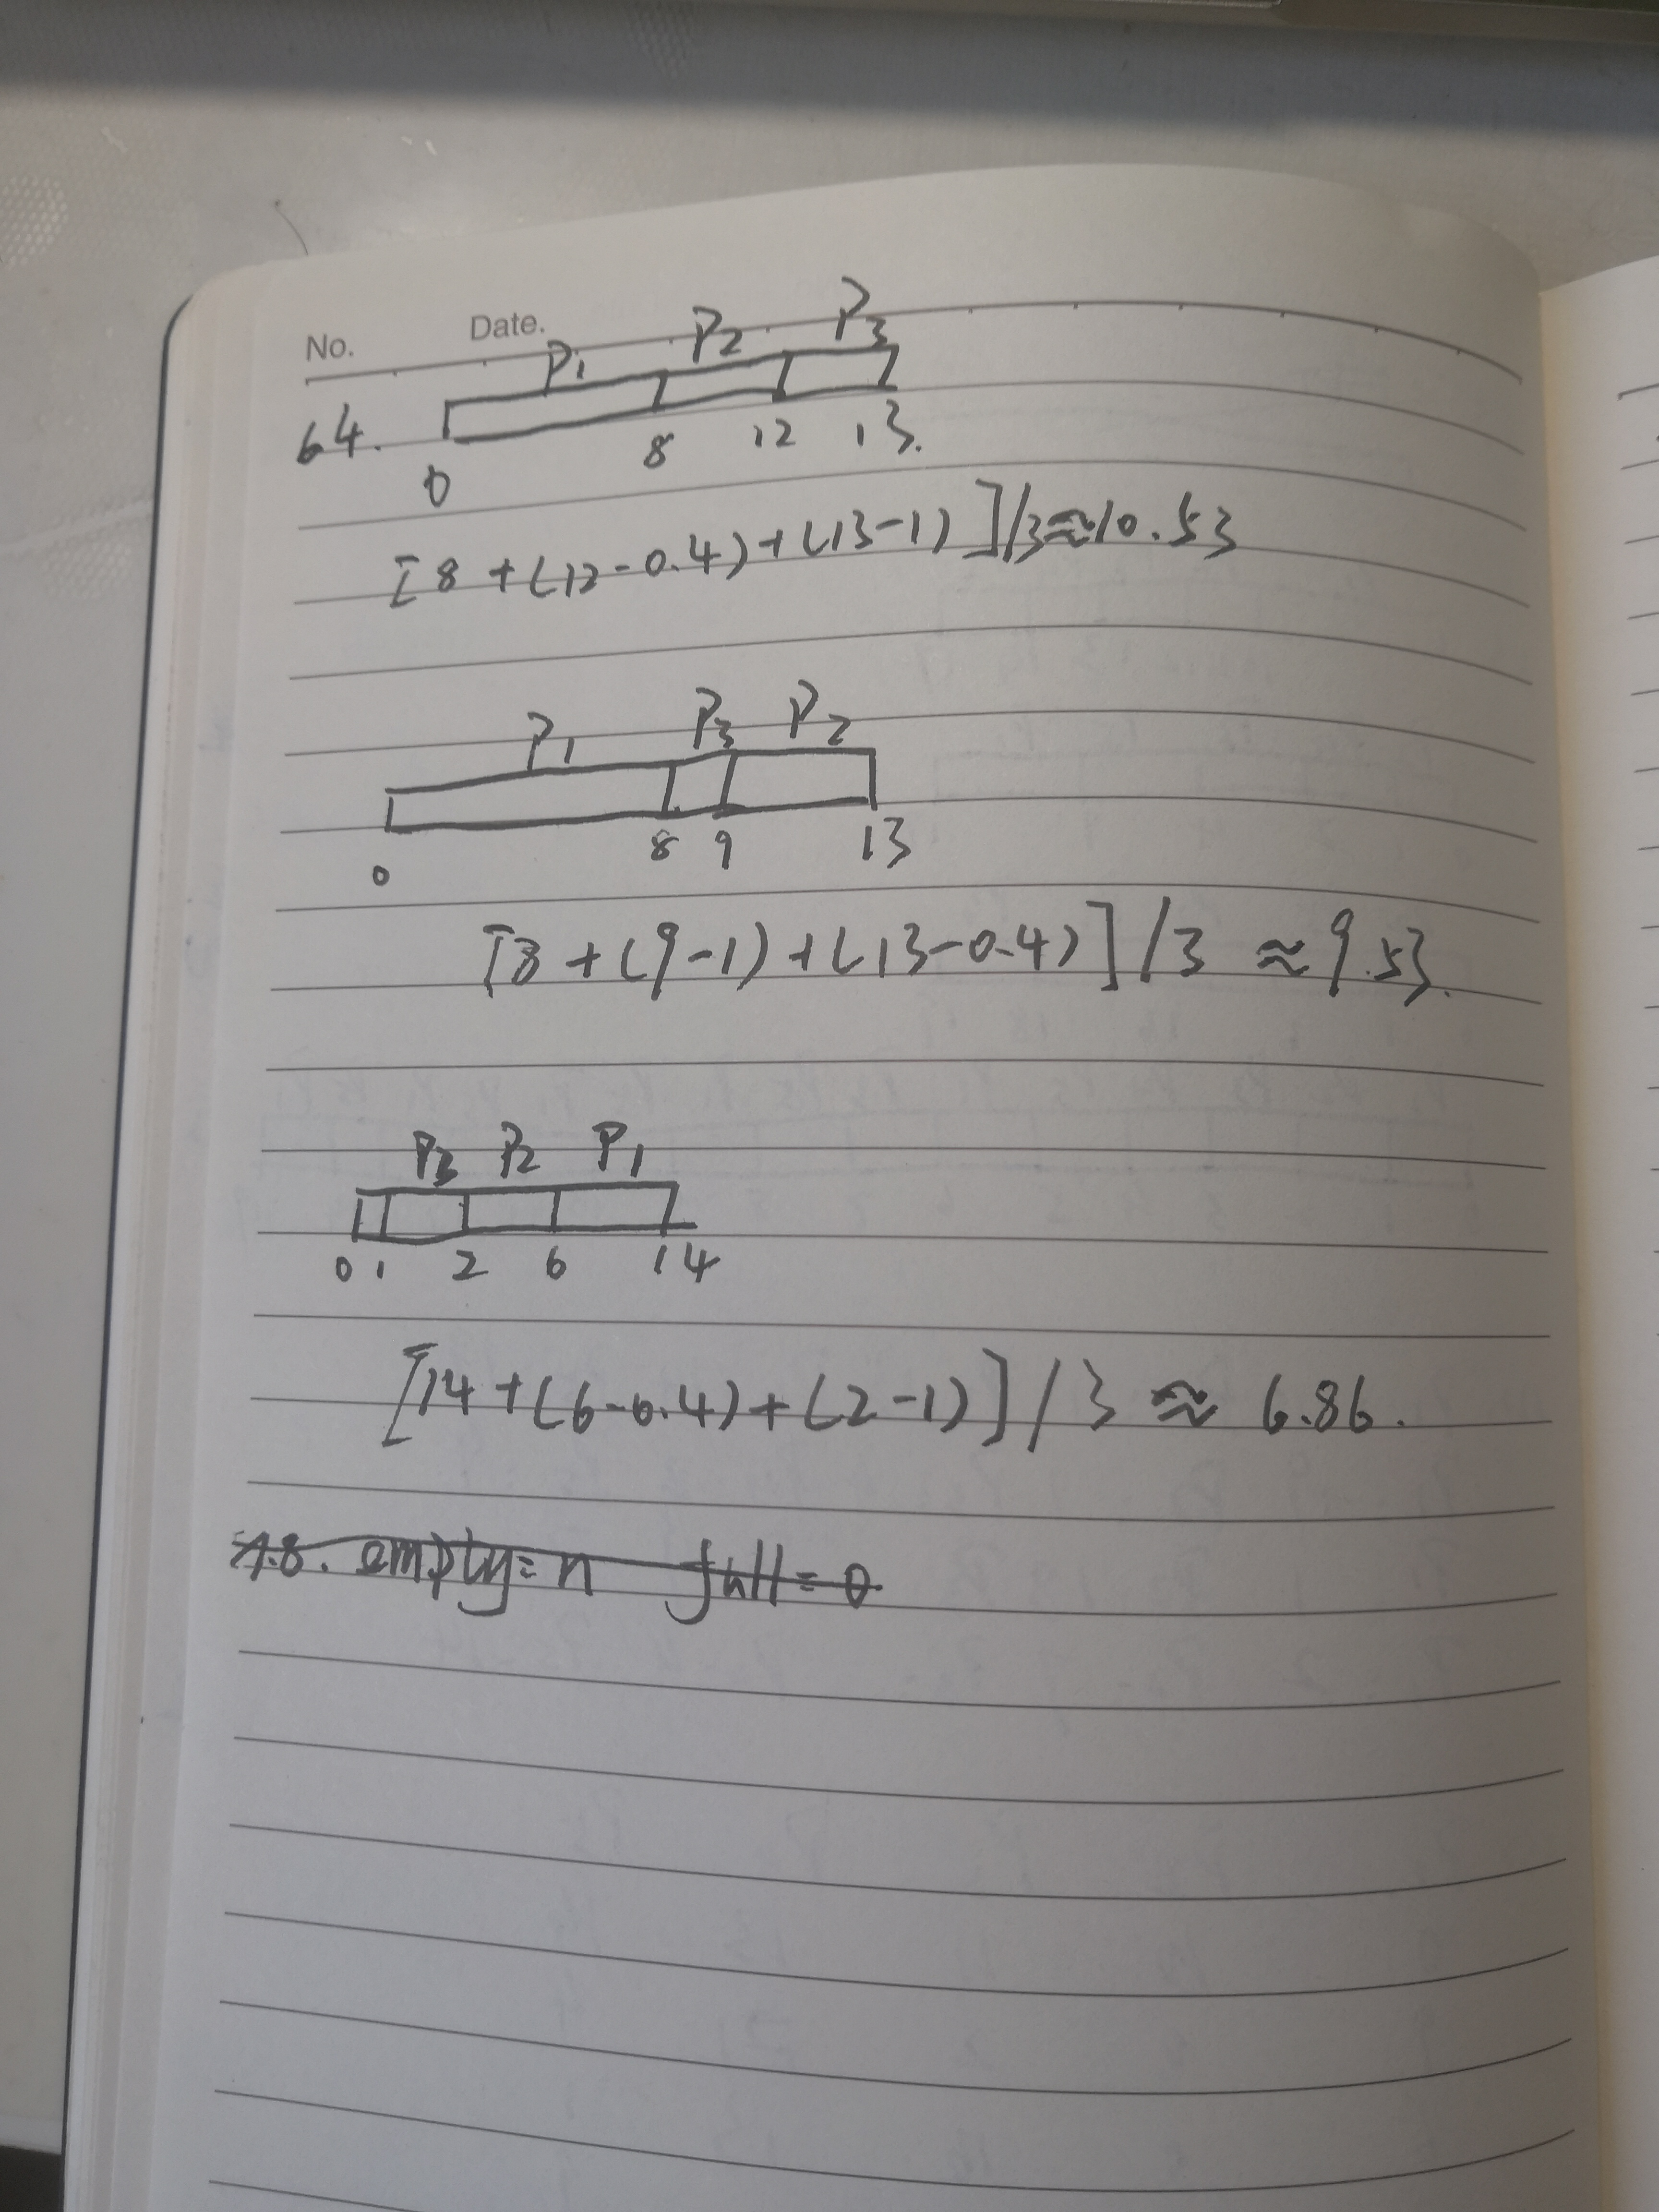 No. Date.
P1 P2 P3
64.
0 8 12 13.
[8+(12-0.4)+(13-1)]/3≈10.53
P1 P3 P2
0 8 9 13
[8+(9-1)+(13-0.4)]/3≈9.53.
P3 P2 P1
0 1 2 6 14
[14+(6-0.4)+(2-1)]/3≈6.86.
empty=n full=0